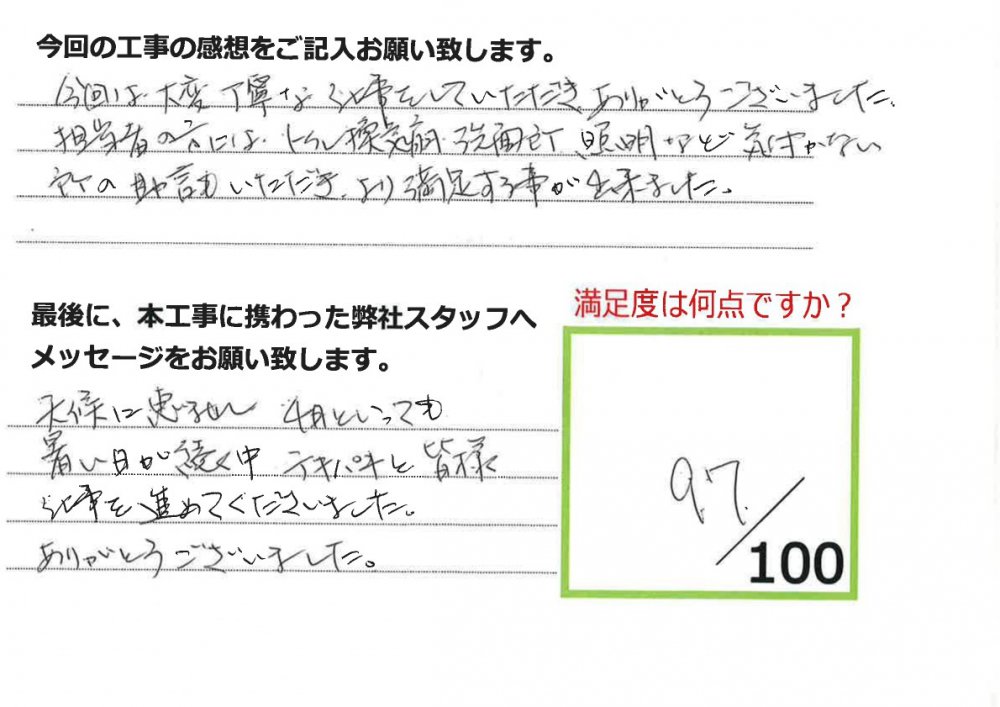 今回の工事の感想をご記入お願い致します。
今回は大変丁寧な仕事をしていただきありがとうございました。
担当者の方には、トイレ換気扇、洗面所、照明など気付かない
所の助言もいただき、より満足する事が出来ました。
最後に、本工事に携わった弊社スタッフへ
メッセージをお願い致します。
天候に恵まれ 4月といっても
暑い日が続く中 テキパキと皆様
仕事を進めてくださいました。
ありがとうございました。
満足度は何点ですか?
97/100